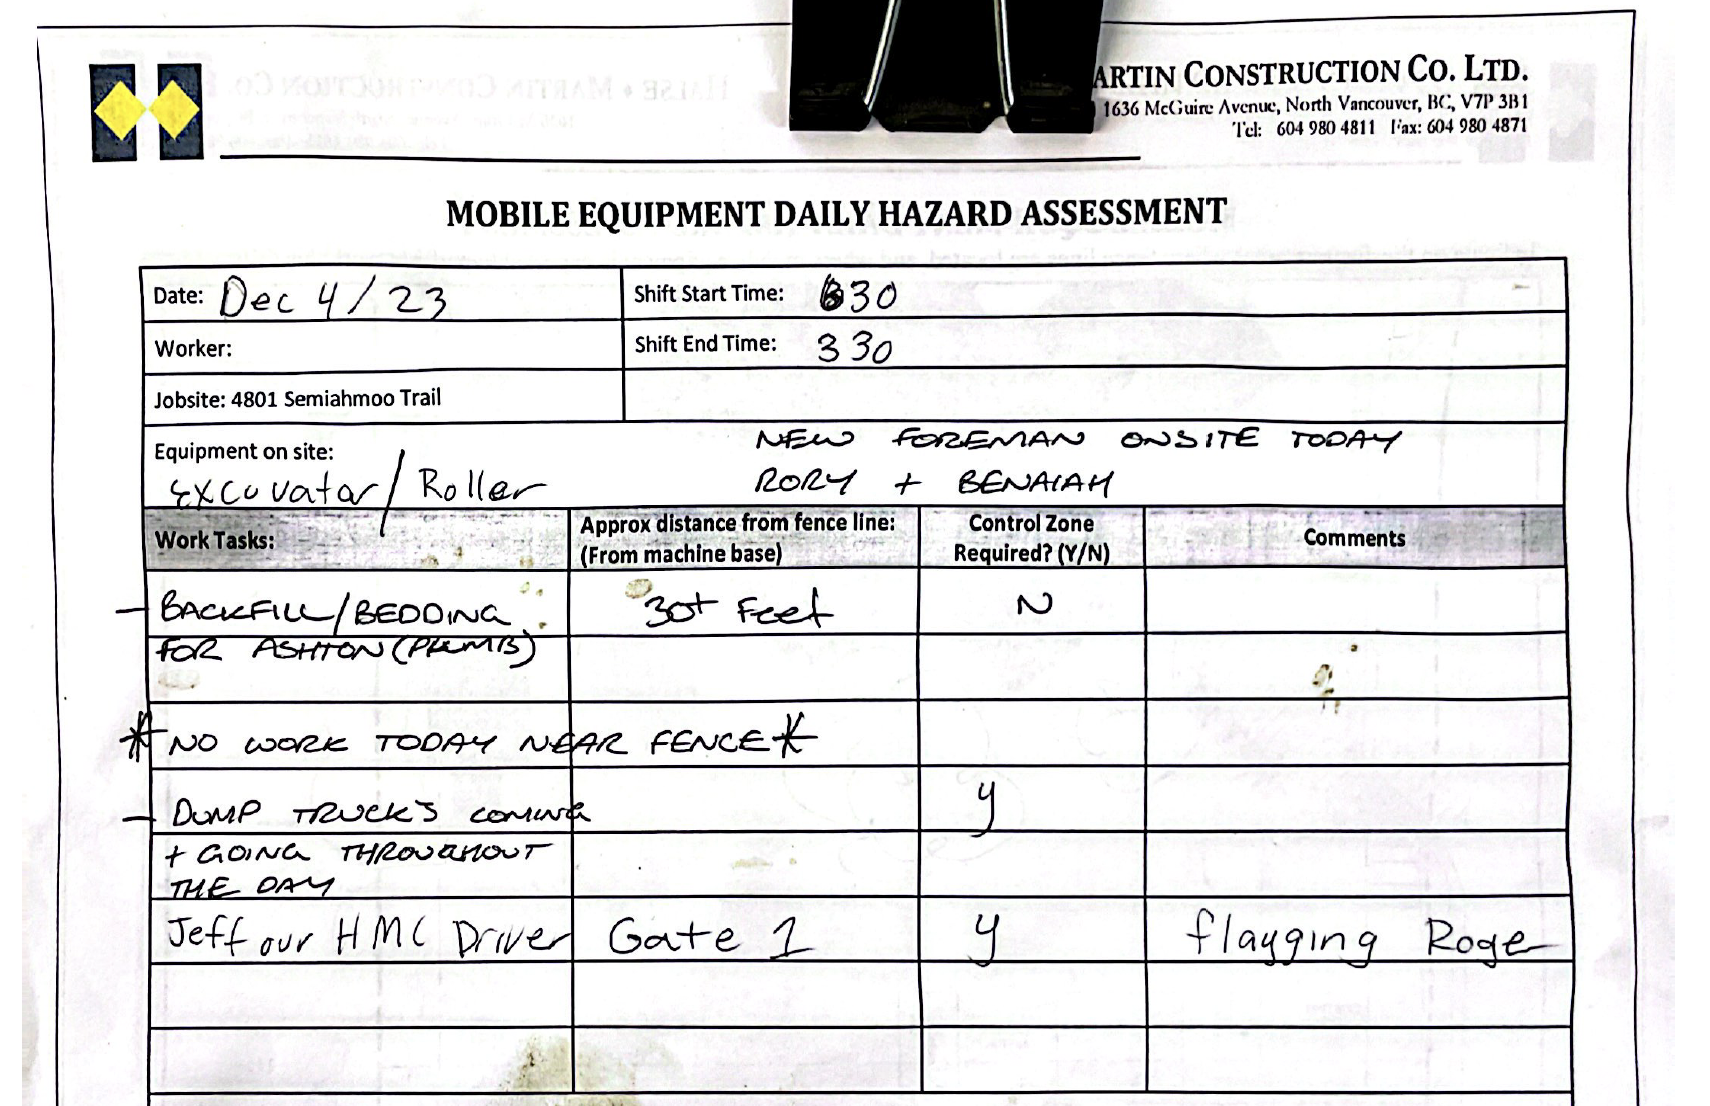 ARTIN CONSTRUCTION CO. LTD.
1636 McGuire Avenue, North Vancouver, BC, V7P 3B1
Tel: 604 980 4811 Fax: 604 980 4871
MOBILE EQUIPMENT DAILY HAZARD ASSESSMENT
Date: Dec 4/23
Shift Start Time: 630
Worker:
Shift End Time: 330
Jobsite: 4801 Semiahmoo Trail
Equipment on site:
Excavator/Roller
NEW FOREMAN ONSITE TODAY
RORY + BENAIAH
Work Tasks:
Approx distance from fence line:
(From machine base)
Control Zone
Required? (Y/N)
Comments
- BACKFILL/BEDDING
FOR ASHTON (PLUMB)
30+ Feet
N
* NO WORK TODAY NEAR FENCE *
- DUMP TRUCK'S COMING
+ GOING THROUGHOUT
THE DAY
y
Jeff our HMC Driver
Gate 1
y
flagging Roge